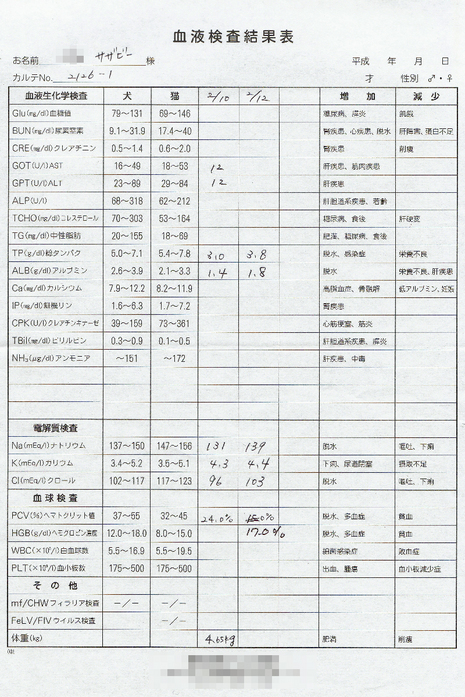 血液検査結果表
お名前 サザビー 様 平成 年 月 日
カルテNo. 2126-1 才 性別 ♂・♀
血液生化学検査 犬 猫 2/10 2/12 増加 減少
Glu(mg/dl)血糖値 79〜131 69〜146 糖尿病、膵炎 飢餓
BUN(mg/dl)尿素窒素 9.1〜31.9 17.4〜40 腎疾患、心疾患、脱水 肝障害、蛋白不足
CRE(mg/dl)クレアチニン 0.5〜1.4 0.6〜2.0 腎疾患 削痩
GOT(U/l)AST 16〜49 18〜53 12 肝疾患、筋肉疾患
GPT(U/l)ALT 23〜89 29〜84 12 肝疾患
ALP(U/l) 68〜318 62〜212 肝胆道系疾患、若齢
TCHO(mg/dl)コレステロール 70〜303 53〜164 糖尿病、食後 肝硬変
TG(mg/dl)中性脂肪 20〜155 18〜69 肥満、糖尿病、食後
TP(g/dl)総タンパク 5.0〜7.1 5.4〜7.8 3.0 3.8 脱水、感染症 栄養不良
ALB(g/dl)アルブミン 2.6〜3.9 2.1〜3.3 1.4 1.8 脱水 栄養不良、肝疾患
Ca(mg/dl)カルシウム 7.9〜12.2 8.2〜11.9 高脂血症、骨融解 低アルブミン、妊娠
IP(mg/dl)無機リン 1.6〜6.3 1.7〜7.2 腎疾患
CPK(U/l)クレアチンキナーゼ 39〜159 73〜361 心筋梗塞、筋炎
TBil(mg/dl)ビリルビン 0.3〜0.9 0.1〜0.5 肝胆道系疾患、膵炎
NH₃(μg/dl)アンモニア 〜151 〜172 肝疾患、中毒
電解質検査
Na(mEq/l)ナトリウム 137〜150 147〜156 131 139 脱水 嘔吐、下痢
K(mEq/l)カリウム 3.4〜5.2 3.5〜5.1 4.3 4.4 下痢、尿道閉塞 摂取不足
Cl(mEq/l)クロール 102〜117 117〜123 96 103 脱水 嘔吐、下痢
血球検査
PCV(%)ヘマトクリット値 37〜55 32〜45 24.0% 脱水、多血症 貧血
HGB(g/dl)ヘモグロビン濃度 12.0〜18.0 8.0〜15.0 17.0% 脱水、多血症 貧血
WBC(×10²/l)白血球数 5.5〜16.9 5.5〜19.5 細菌感染症 敗血症
PLT(×10⁴/l)血小板数 175〜500 175〜500 出血、腫瘍 血小板減少症
その他
mf/CHWフィラリア検査 −/− −/−
FeLV/FIVウイルス検査 −/−
体重(kg) 4.65kg 肥満 削痩